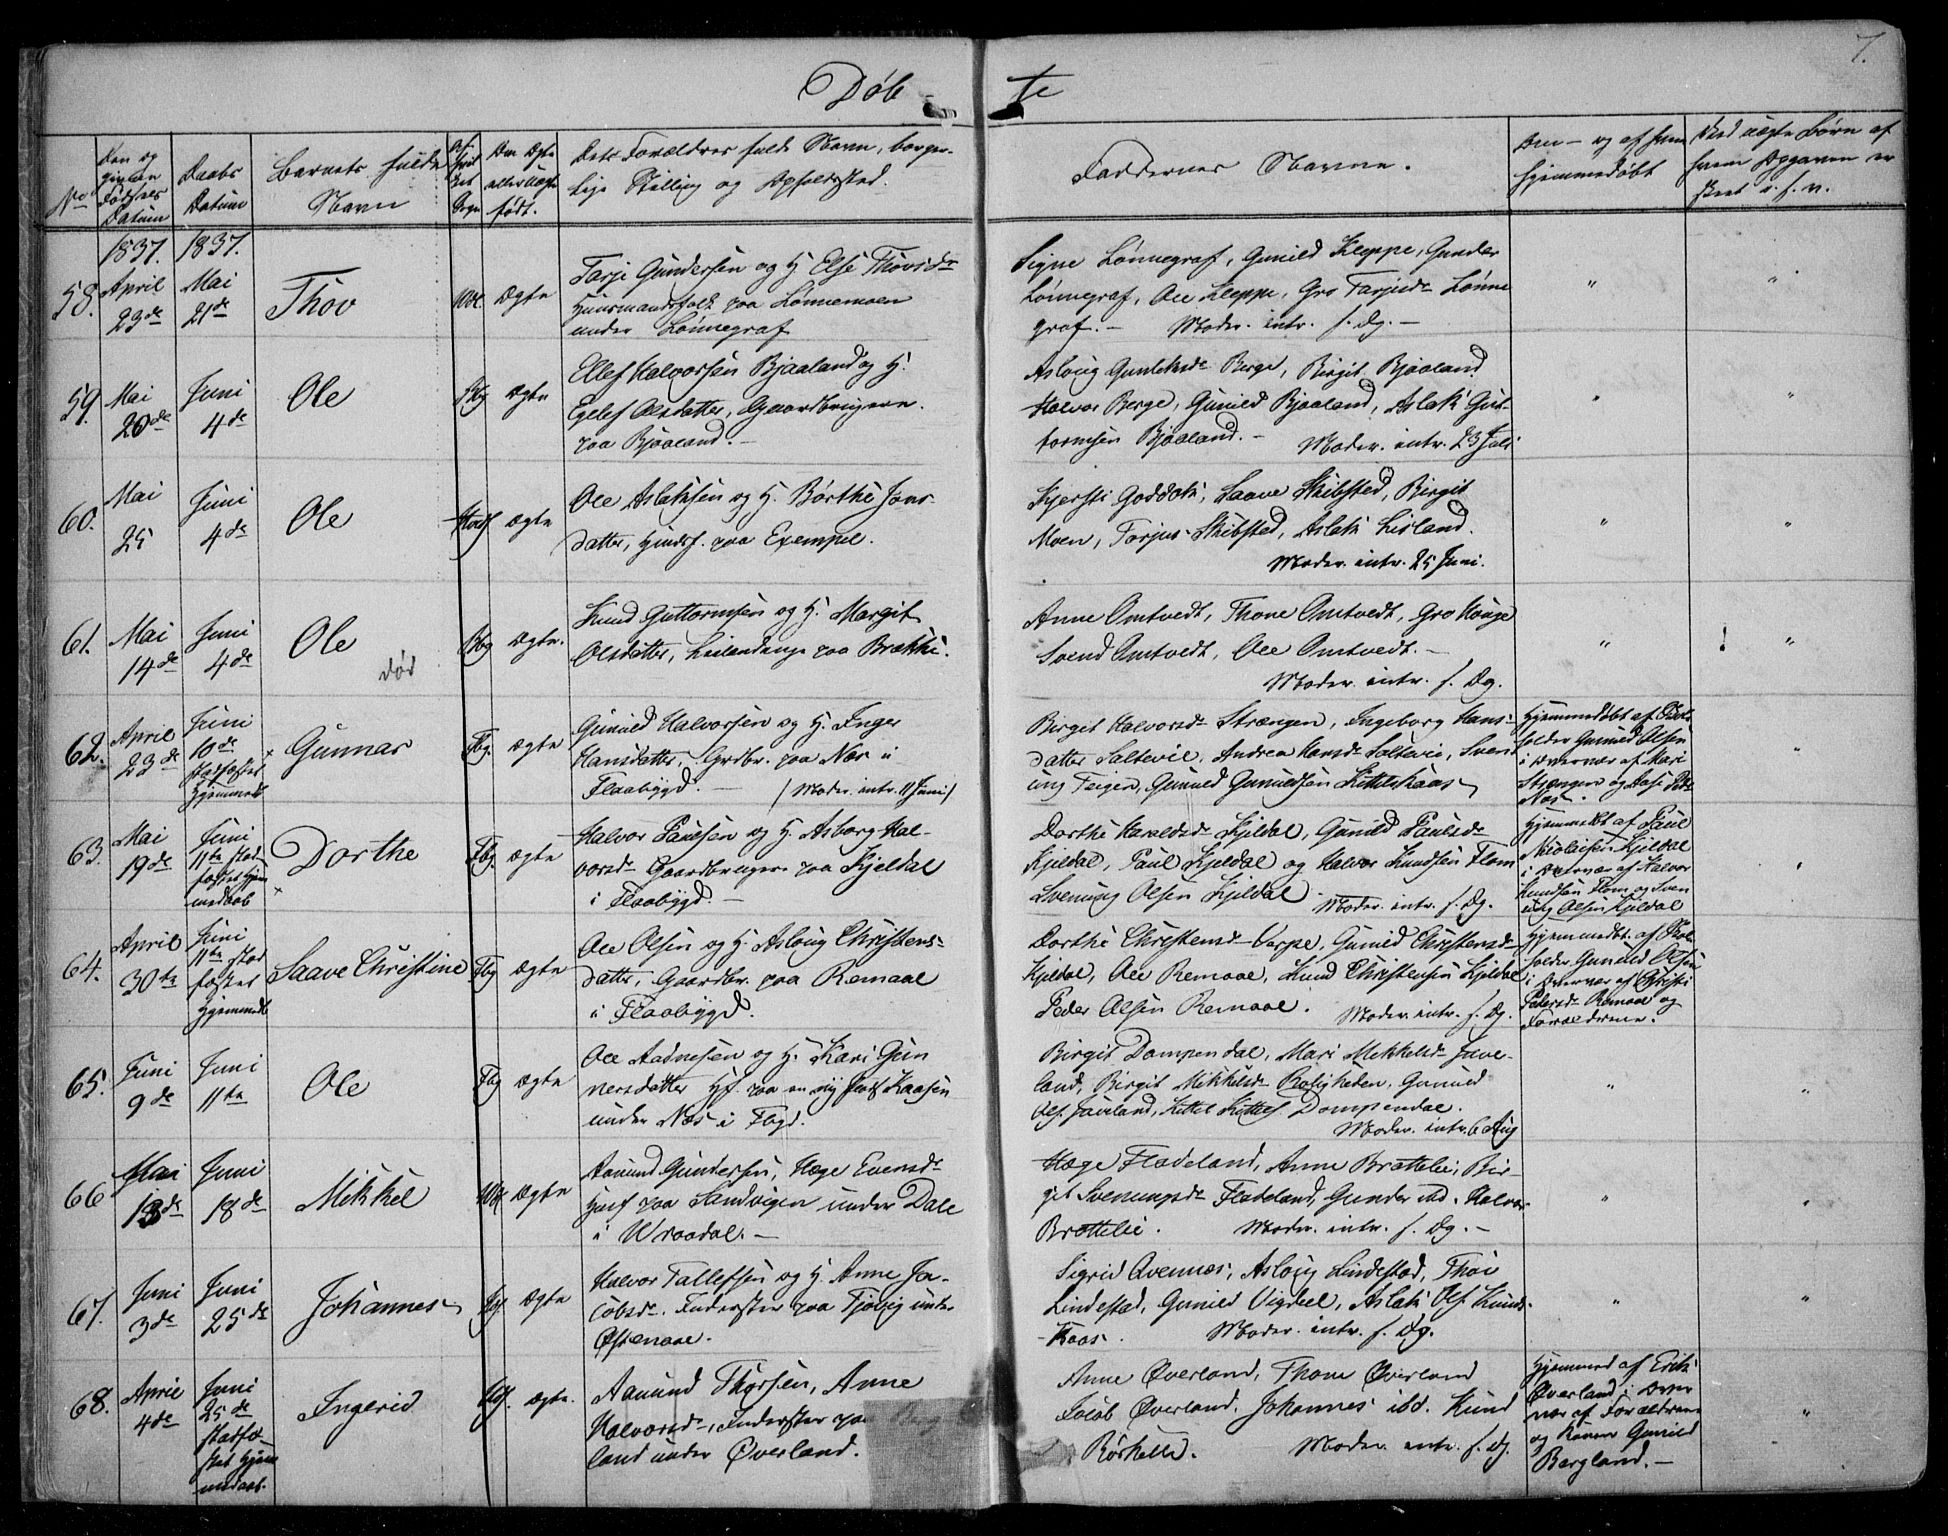 7.
Døb - te
No
Den og
Daabs
Datum
Barnets fulde
Navn
Den Ægte
eller Uægte
født.
Dets Forældres fulde Navn, borger-
lige Stilling og Opholdssted.
Faddernes Navne.
Om - og af hvem
hjemmedøbt
Ved uægte Børn af
hvem Opgaven er
skeet o. s. v.
1837. 1837.
58. April 23de
Mai 21de
Thov
Ægte
Tarje Gundersen og H. Else Thovsdr
Huusmandsfolk paa Lønnemoen
under Lønnegraf
Signe Lønnegraf, Gunild Kleppe, Gunder
Lønnegraf, Ole Kleppe, Gro Tarjusdr Lønne
graf. - Moder. intr. s. Dg. -
59. Mai 20de
Juni 4de
Ole
Ægte
Ellef Halvorsen Bjaaland og H.
Egelef Olsdatter, Gaardbrugere
paa Bjaaland. -
Asloug Gunleksdr Berge, Birgit Bjaaland
Halvor Berge, Gunild Bjaaland, Aslak Gut-
tormsen Bjaaland. - Moder. intr. 23 Juli
60. Mai 25
Juni 4de
Ole
Ægte
Ole Aslaksen og H. Børthe Jons
datter, Huusf. paa Exempel.
Kjersti Goddok, Saave Skibsted, Birgit
Moen, Tarjus Skibsted, Aslak Lisland.
Moder. intr. 25 Juni.
61. Mai 14de
Juni 4de
Ole
død
Ægte.
Knud Guttormsen og H. Margit
Olsdatter, Leilændinge paa Brække.
Anne Omtvedt, Thone Omtvedt, Gro Houge
Svend Omtvedt, Ole Omtvedt. -
Moder. intr. s. Dg.
62. April 23de
Juni 10de
stadfæstet
Hjemmedb
Gunnar
Fbg. Ægte
Gunuld Halvorsen og H. Inger
Hansdatter, Grdbr. paa Næs i
Flaabygd. - / Moder. intr. 11 Juni /
Birgit Halvorsdr Strængen, Ingeborg Hans-
datter Saltevie, Andrea Hansdr Saltevie, Sven
ung Teigen, Gunuld Gunuldsen Kittelskaas
Hjemmedøbt af Skole
holder Gunuld Olsen
i Overvær af Mari
Strængen og
Næs.
63. Mai 19de
Juni 11te stad
fæstet Hjem
medaab
Dorthe
Fbg. Ægte
Halvor Paulsen og H. Asborg Hal-
vorsdr Gaardbrugere paa Kjeldal
i Flaabygd. -
Dorthe Haraldsdr Kjeldal, Gunild Paulsdr
Kjeldal, Paul Kjeldal og Halvor Knudsen Flom
Svenung Olsen Kjeldal - Moder. intr. s. Dg.
Hjemmedbt af Paul
Nicolaisen Kjeldal
i Overvær af Halvor
Knudsen Flom og Sven
ung Olsen Kjeldal
64. April 30te
Juni 11te stad
fæstet
Hjemmedb
Saave Christine
Fbg Ægte
Ole Olsen og H. Asloug Christens-
datter, Gaardbr. paa Remaal
i Flaabygd.
Dorthe Christensdr Verpe, Gunild Christensdr
Kjeldal, Ole Remaal, Knud Christensen Kjeldal
Peder Olsen Remaal. Moder. intr. s. Dg.
Hjemmedbt. af Skole
holder Gunuld Olsen
i Overvær af Christi
Pedersdr Remaal og
Forældrene.
65. Juni 9de
Juni 11te
Ole
Fbg Ægte
Ole Aadnesen og H. Kari Gun
nersdatter Hf. paa en ny Plads Kaasen
under Næs i Fbgd.
Birgit Dampendal, Mari Mekkelsdr Jave-
land, Birgit Mikkelsdr Roligheden, Gunuld
Ols. Javeland, Kittel Kittels Dampendal.
Moder. intr. 6 Aug
66 Mai 13de
Juni 18de
Mikkel
Ægte
Aanund Gundersen, Hæge Evensdr
Husf paa Sandvigen under Dale
i Wraadal. -
Hæge Fladeland, Anne Brottelie, Bir-
git Svenungsdr Fladeland, Gunder ibd. Halvor
Brottelie. Moder. intr. s. Dg. -
67. Juni 3de
Juni 25de
Johannes
Ægte
Halvor Tallefsen og H. Anne Ja-
cobsdr. Inderster paa Tjølvig under
Østenaae.
Sigrid Qvennæs, Asloug Lindestad, Thor
Lindestad, Gunild Vigdeel, Aslak Ols. Lunds-
kaas. Moder. intr. s. Dg.
68. April 4de
Juni 25de
stadfæ-
stet Hjem
medaab.
Ingerid
Ægte.
Aanund Thorsen, Anne
Halvorsdr, Inderster paa Berg
land under Øverland.
Anne Øverland, Thone Øverland
Jacob Øverland, Johannes ibd. Knud
Rørholt. Moder. intr. s. Dg.
Hjemmed af Erik
Øverland i Over
vær af Forældrene
og Konen Gunild
Bergland. -